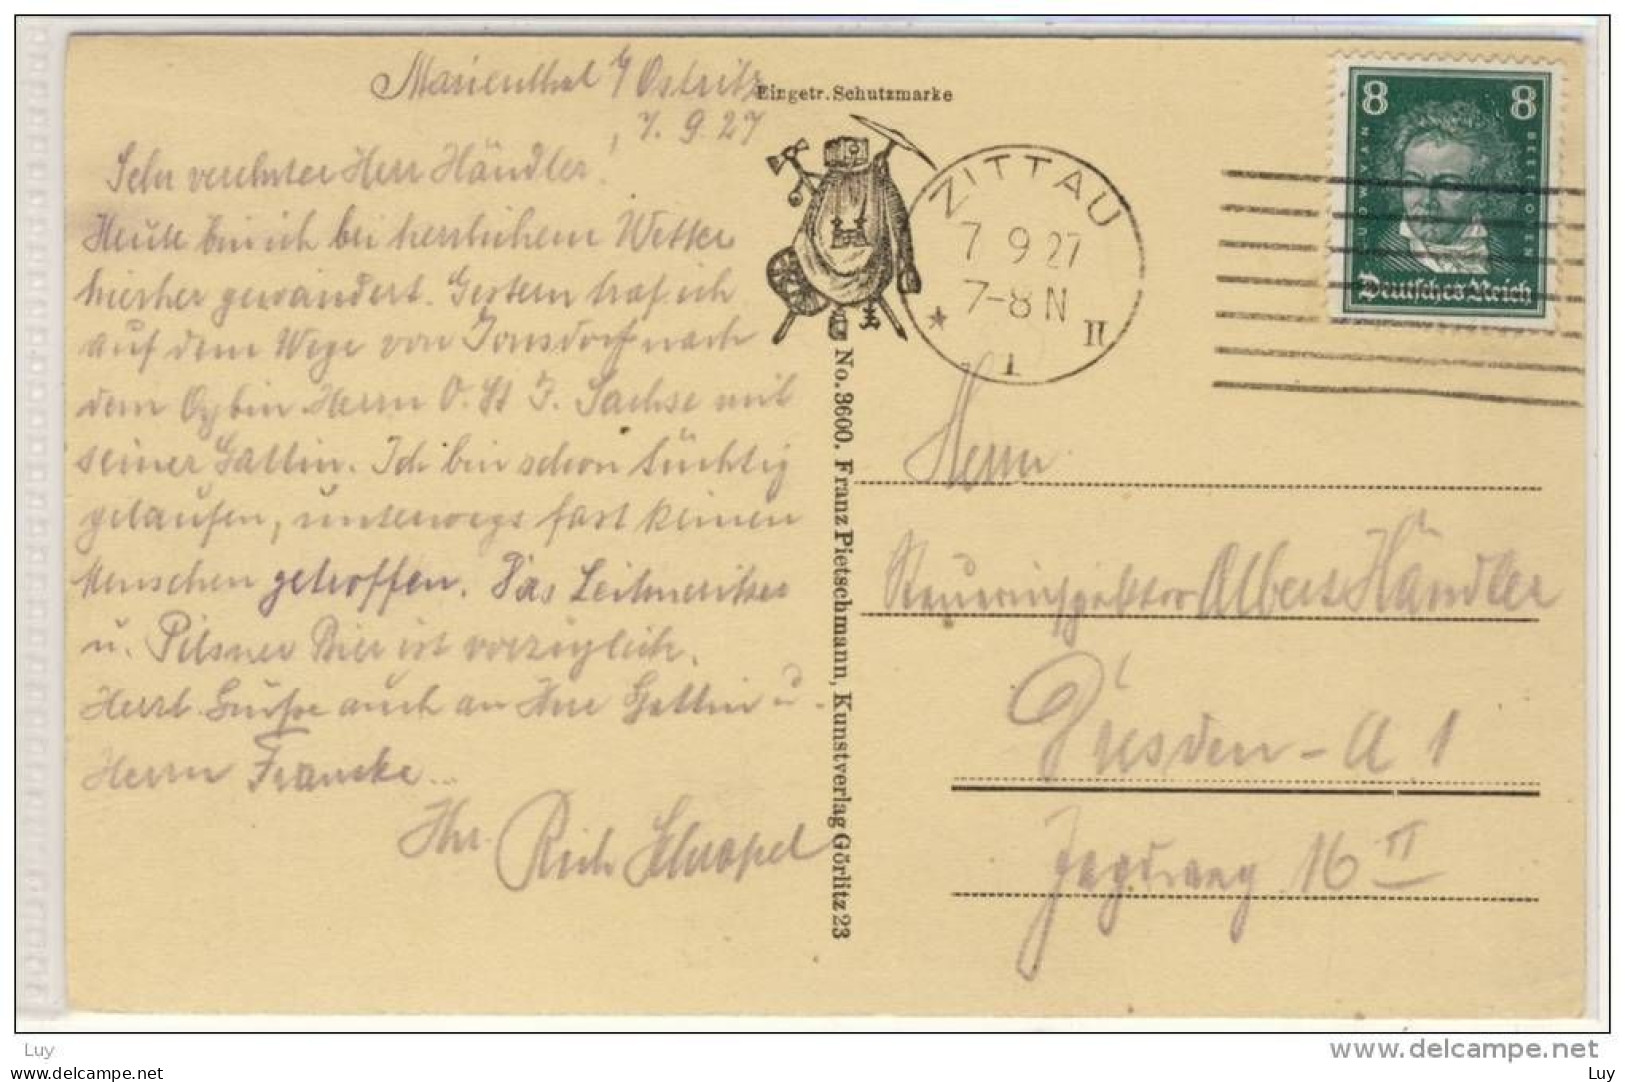 Marienthal b/ Ostritz
7. 9. 27
Sehr verehrter Herr Händler!
Heute bin ich bei herrlichem Wetter
hierher gewandert. Gestern traf ich
auf dem Wege von Jonsdorf nach
dem Oybin Herrn O. St. I. Sachse mit
seiner Gattin. Ich bin schon tüchtig
gelaufen, unterwegs fast keinen
Menschen getroffen. Das Leitmeritzer
u. Pilsner Bier ist vorzüglich.
Herzl. Grüße auch an Ihre Gattin u.
Herrn Francke.
Ihr Rich
Eingetr. Schutzmarke
No. 3600. Franz Pietschmann, Kunstverlag Görlitz 23
ZITTAU
7 9 27
7-8 N
* II
1
8 8
LUDWIG VAN BEETHOVEN
Deutsches Reich
Herrn
Steuerinspektor Albert Händler
Dresden-A 1
Jagdweg 16 II
Luy
www.delcampe.net
www.delcampe.com
Luy